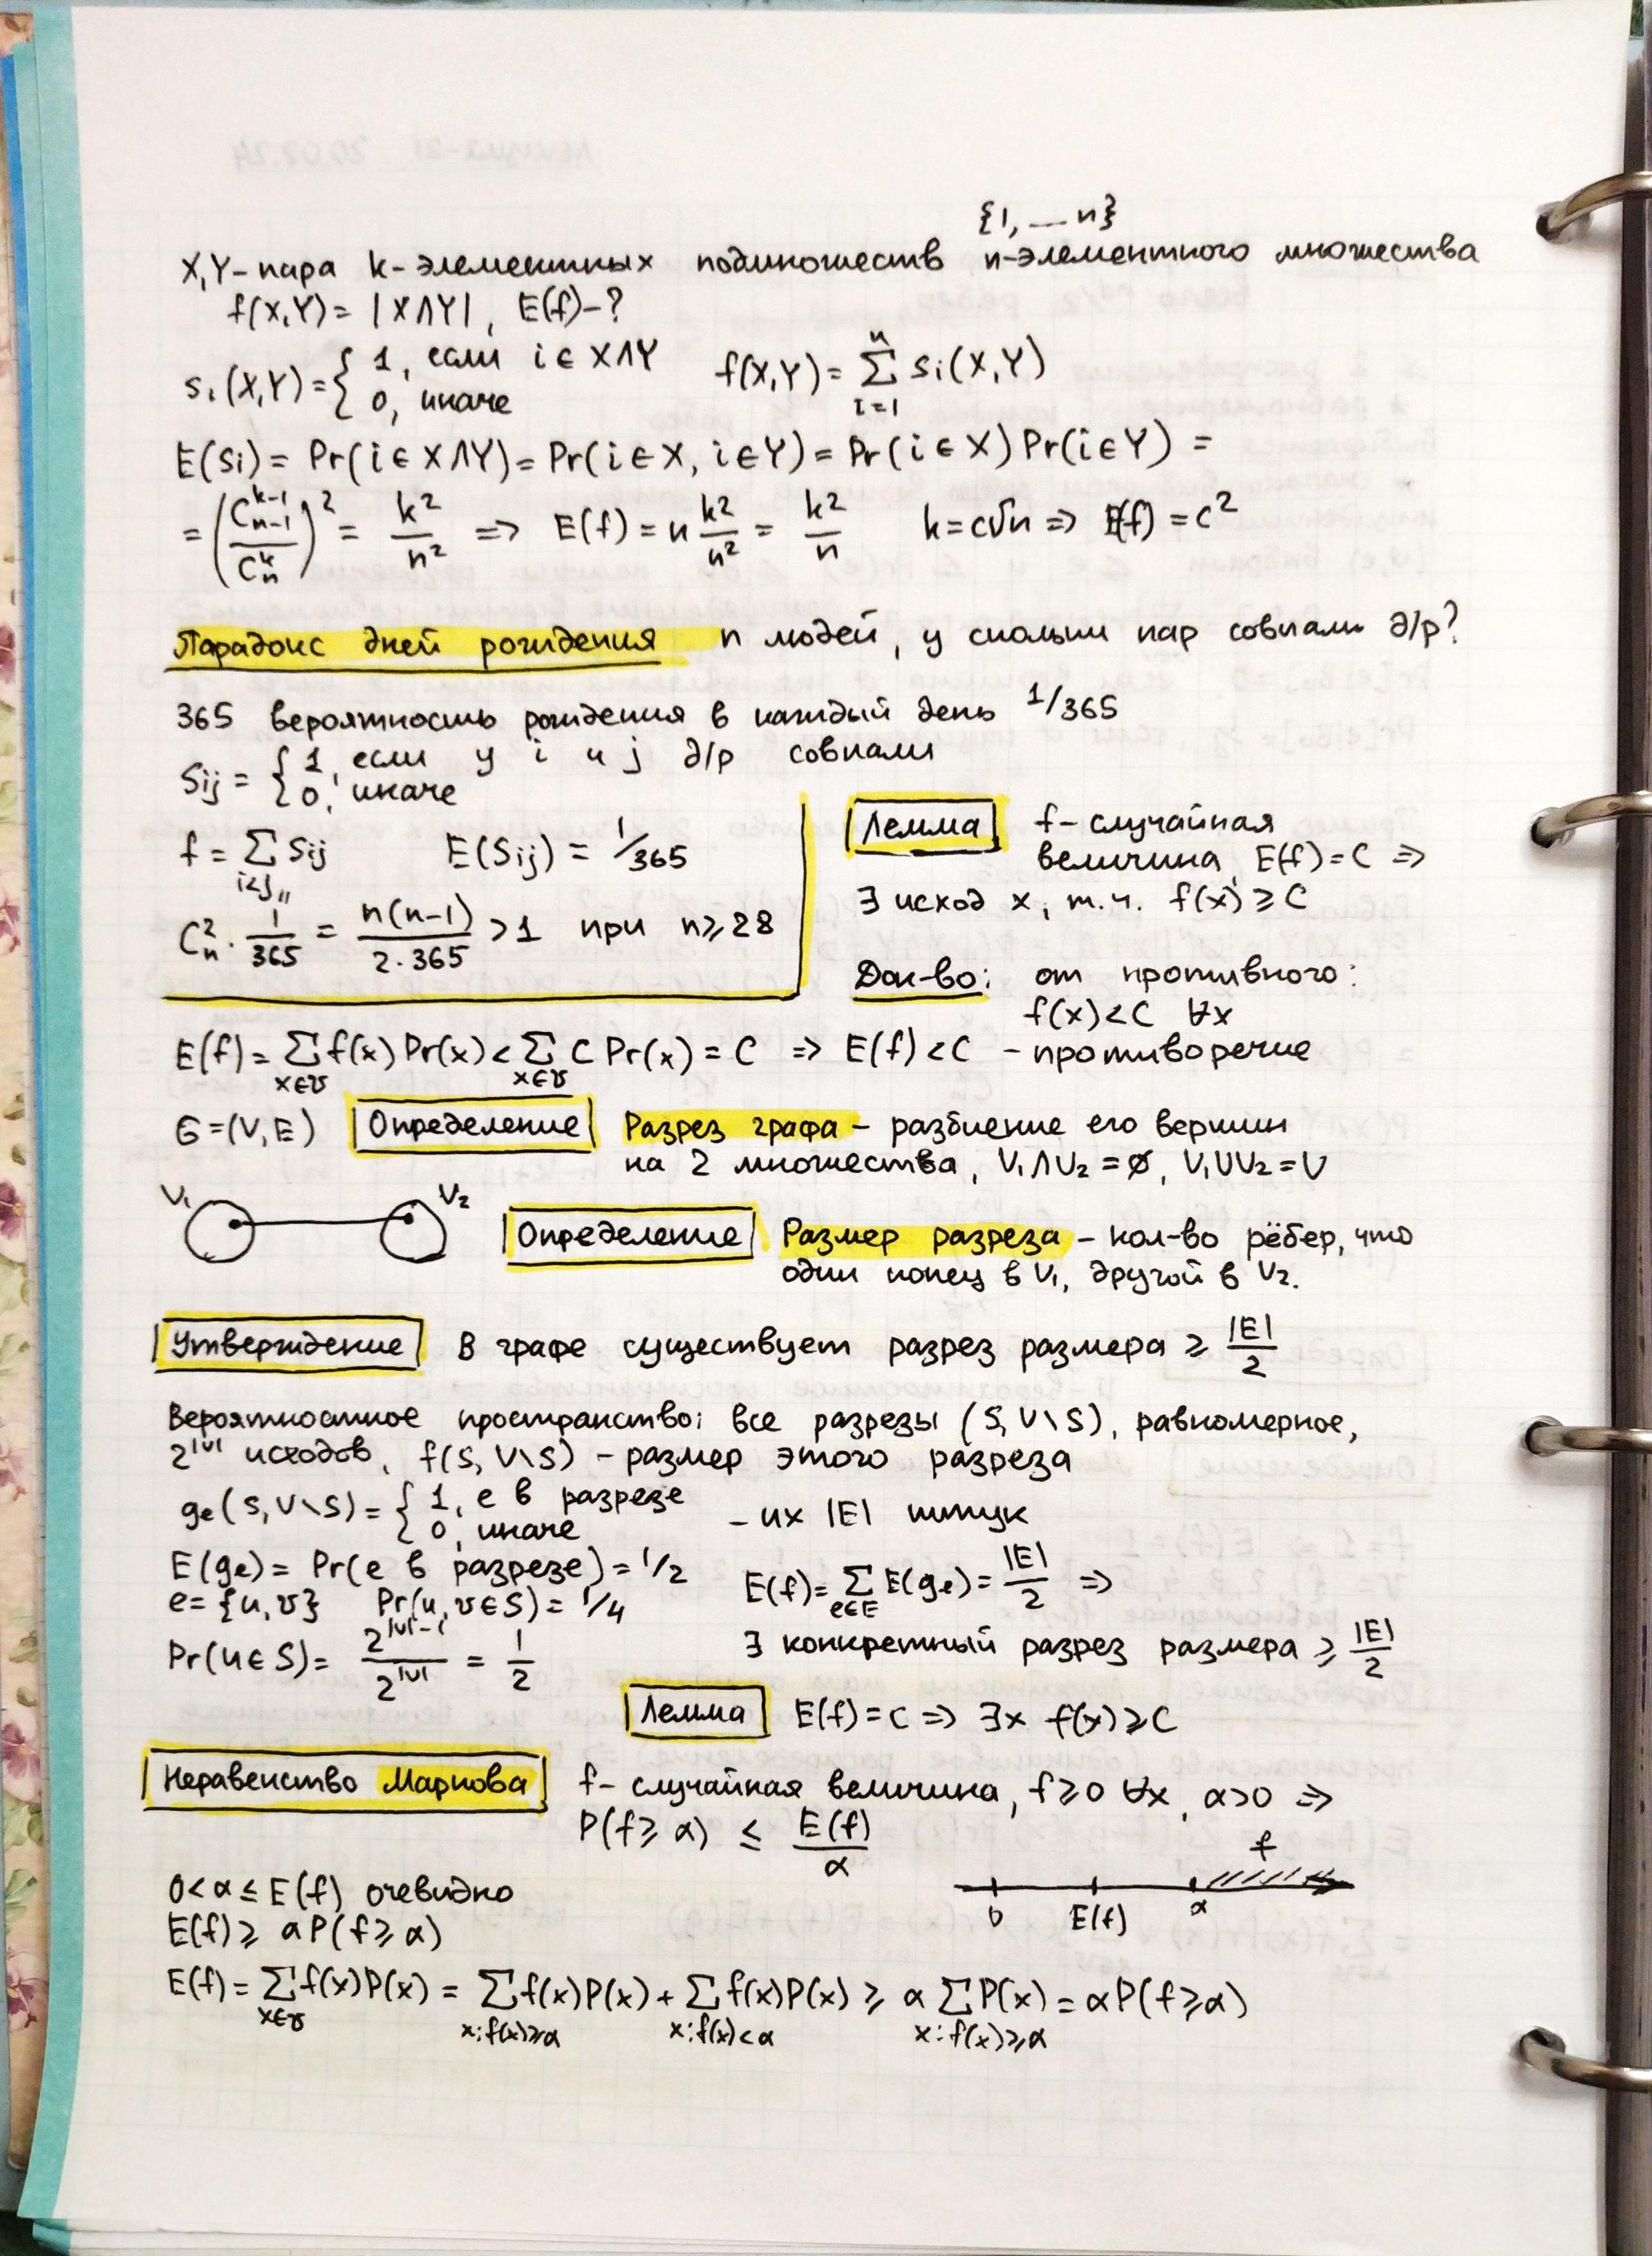 {1, ... n}
X,Y – пара k-элементных подмножеств n-элементного множества
f(X,Y) = |X∩Y|, E(f)-?
sᵢ(X,Y) = { 1, если i ∈ X∩Y ; 0, иначе    f(X,Y) = Σ_{i=1}^{n} sᵢ(X,Y)
E(sᵢ) = Pr(i ∈ X∩Y) = Pr(i ∈ X, i ∈ Y) = Pr(i ∈ X) Pr(i ∈ Y) =
= (C_{n-1}^{k-1} / C_n^k)² = k²/n² => E(f) = n k²/n² = k²/n    k = c√n => E(f) = c²
Парадокс дней рождения n людей, у скольки пар совпали д/р?
365 вероятность рождения в каждый день 1/365
Sij = { 1, если у i и j д/р совпали ; 0, иначе
f = Σ_{i<j} Sij    E(Sij) = 1/365
"
C_n^2 · 1/365 = n(n-1)/(2·365) > 1 при n ≥ 28
Лемма f – случайная
величина, E(f) = C =>
∃ исход x, т.ч. f(x) ≥ C
Док-во: от противного:
f(x) < C ∀x
E(f) = Σ_{x∈υ} f(x) Pr(x) < Σ_{x∈υ} C Pr(x) = C => E(f) < C – противоречие
G = (V, E) Определение Разрез графа – разбиение его вершин
на 2 множества, V₁∩V₂ = ∅, V₁∪V₂ = V
V₁ V₂
Определение Размер разреза – кол-во рёбер, что
один конец в V₁, другой в V₂.
Утверждение В графе существует разрез размера ≥ |E|/2
Вероятностное пространство: все разрезы (S, V\S), равномерное,
2^|V| исходов, f(S, V\S) – размер этого разреза
gₑ(S, V\S) = { 1, e в разрезе ; 0, иначе – их |E| штук
E(gₑ) = Pr(e в разрезе) = 1/2
e = {u, v} Pr(u, v ∈ S) = 1/4
Pr(u ∈ S) = 2^{|V|-1} / 2^{|V|} = 1/2
E(f) = Σ_{e∈E} E(gₑ) = |E|/2 =>
∃ конкретный разрез размера ≥ |E|/2
Лемма E(f) = C => ∃x f(x) ≥ C
Неравенство Маркова f – случайная величина, f ≥ 0 ∀x, α > 0 =>
P(f ≥ α) ≤ E(f)/α
f
0 E(f) α
0 < α ≤ E(f) очевидно
E(f) ≥ αP(f ≥ α)
E(f) = Σ_{x∈υ} f(x)P(x) = Σ_{x:f(x)≥α} f(x)P(x) + Σ_{x:f(x)<α} f(x)P(x) ≥ α Σ_{x:f(x)≥α} P(x) = αP(f ≥ α)